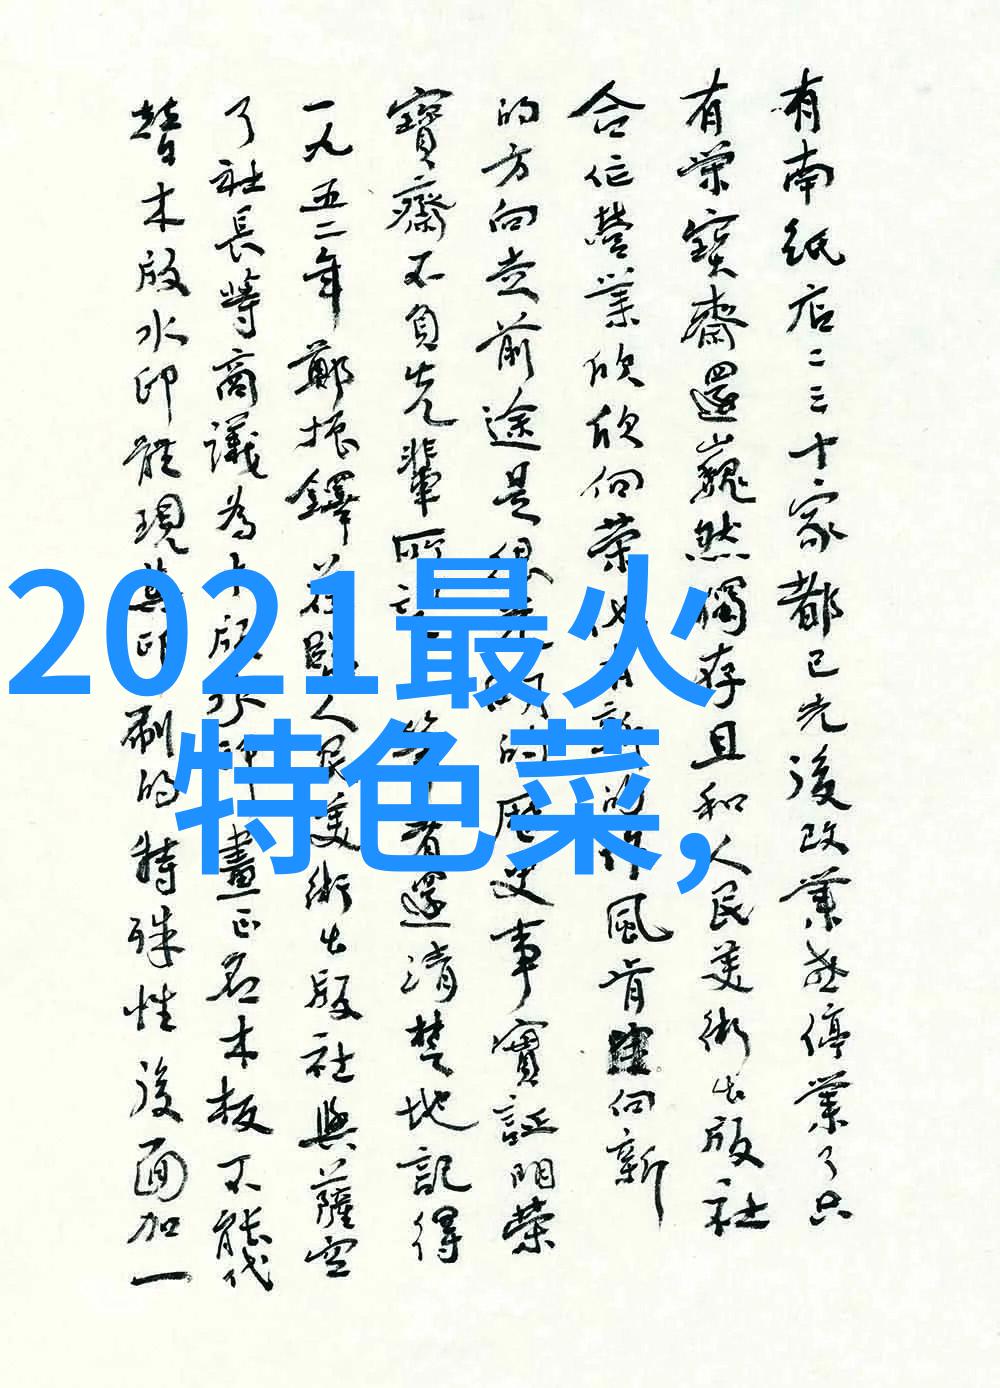 有南纸店二三十家都已先後改業或停業了只
有榮寶齋還巍然獨存且和人民美術出版社
合作營業欣欣向荣也有新的作風肯向新
的方向走前途是很光明的歷史事實証明榮
寶齋不負先輩所
有還清楚地記得
一九五二年鄭振鐸
人民美術出版社與薩空
了社長等商議為木版水印畫正名木板不能代
替木版水印能現其印刷的特殊性後面加一
2021最火
特色菜,